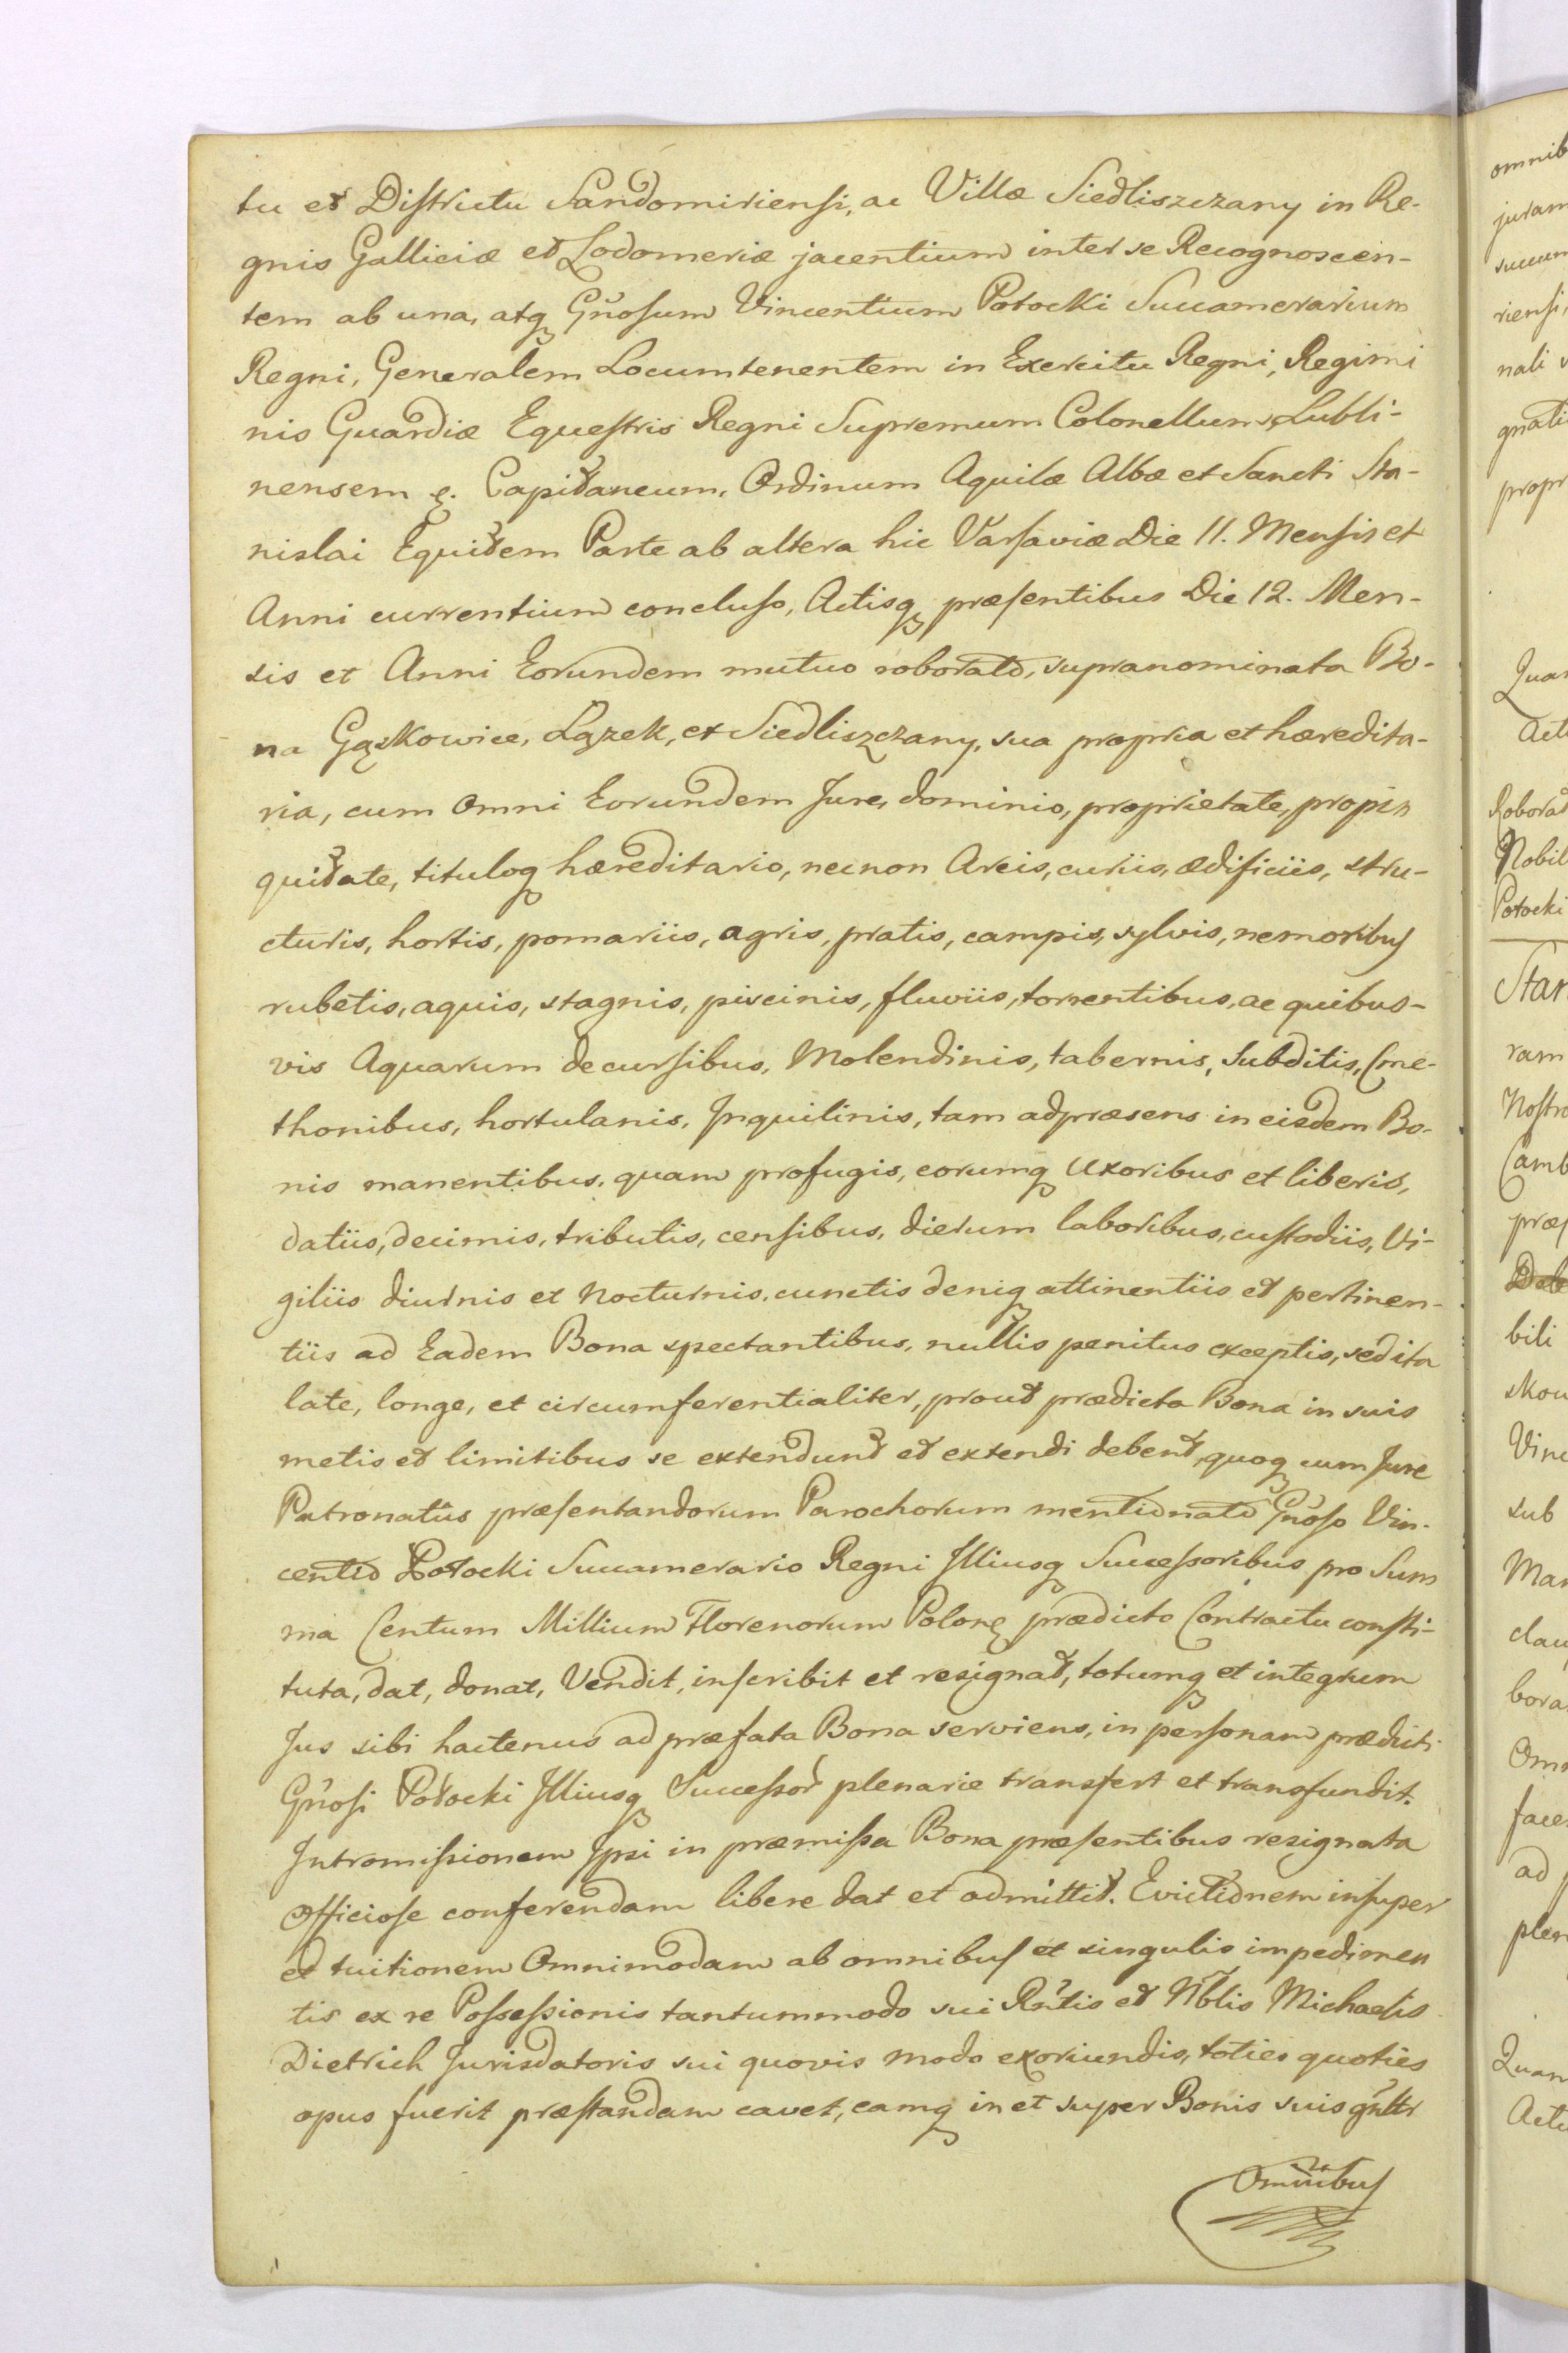 tu et Districtu Sandomiriensi, ac Villæ Siedliszczany in Re-
gnis Galliciæ et Lodomeriæ jacentium inter se Recognoscen-
tem ab una, atq Gñosum Vincentium Potocki Succamerarium
Regni, Generalem Locumtenentem in Exercitu Regni, Regimi
nis Guardiæ Equestris Regni Supremum Colonellum, Lubli-
nensem &. Capitaneum, Ordinum Aquilæ Albæ et Sancti Sta-
nislai Equitem Parte ab altera hic Varsaviæ Die 11. Mensis et
Anni currentium concluso, Actisq præsentibus Die 12. Men-
sis et Anni Eorundem mutuo roborato, supranominata Bo-
na Gąskowice, Lązek, et Siedliszczany, sua propria et hæredita-
ria, cum omni Eorundem Jure, dominio, proprietate, propin
quitate, tituloq hæreditario, necnon Areis, curiis, ædificiis, stru-
cturis, hortis, pomariis, agris, pratis, campis, sylvis, nemoribus
rubetis, aquis, stagnis, piscinis, fluviis, torrentibus, ac quibus-
vis Aquarum decursibus, Molendinis, tabernis, Subditis, Cme-
thonibus, hortulanis, Inquilinis, tam adpræsens in eisdem Bo-
nis manentibus, quam profugis, eorumq Uxoribus et liberis,
datiis, decimis, tributis, censibus, dierum laboribus, custodiis, Vi-
giliis diurnis et Nocturnis, cunctis deniq attinentiis et pertinen-
tiis ad Eadem Bona spectantibus, nullis penitus exceptis, sed ita
late, longe, et circumferentialiter, prout prædicta Bona in suis
metis et limitibus se extendunt et extendi debent, quoq cum Jure
Patronatûs præsentandorum Parochorum mentionato Gñoso Vin-
centio Potocki Succamerario Regni Illiusq Successoribus pro Sum
ma Centum Millium Florenorum Polonę prædicto Contractu consti-
tuta, dat, donat, Vendit, inscribit et resignat, totumq et integrum
Jus sibi hactenus ad præfata Bona serviens, in personam prædicti
Gñosi Potocki Illiusq Successor plenarie transfert et transfundit.
Intromissionem Ipsi in præmissa Bona præsentibus resignata
officiose conferendam libere dat et admittit. Evictionem insuper
et tuitionem Omnimodam ab omnibus et singulis impedimen
tis ex re Possessionis tantummodo sui Rñtis et Nblis Michaelis
Dietrich Jurisdatoris sui quovis modo exoriundis, toties quoties
opus fuerit præstandam cavet, eamq in et super Bonis suis gñltr
Omnibus
omnib
juram
succum
riensi,
nali
gnati
propr
Quam
Actu
Roborat
Nobil
Potocki
Star
ram
Nostro
Camb
præs
bili
skow
Vinc
sub
Man
clau
bora
Omn
face
ad
plen
Quam
Actu